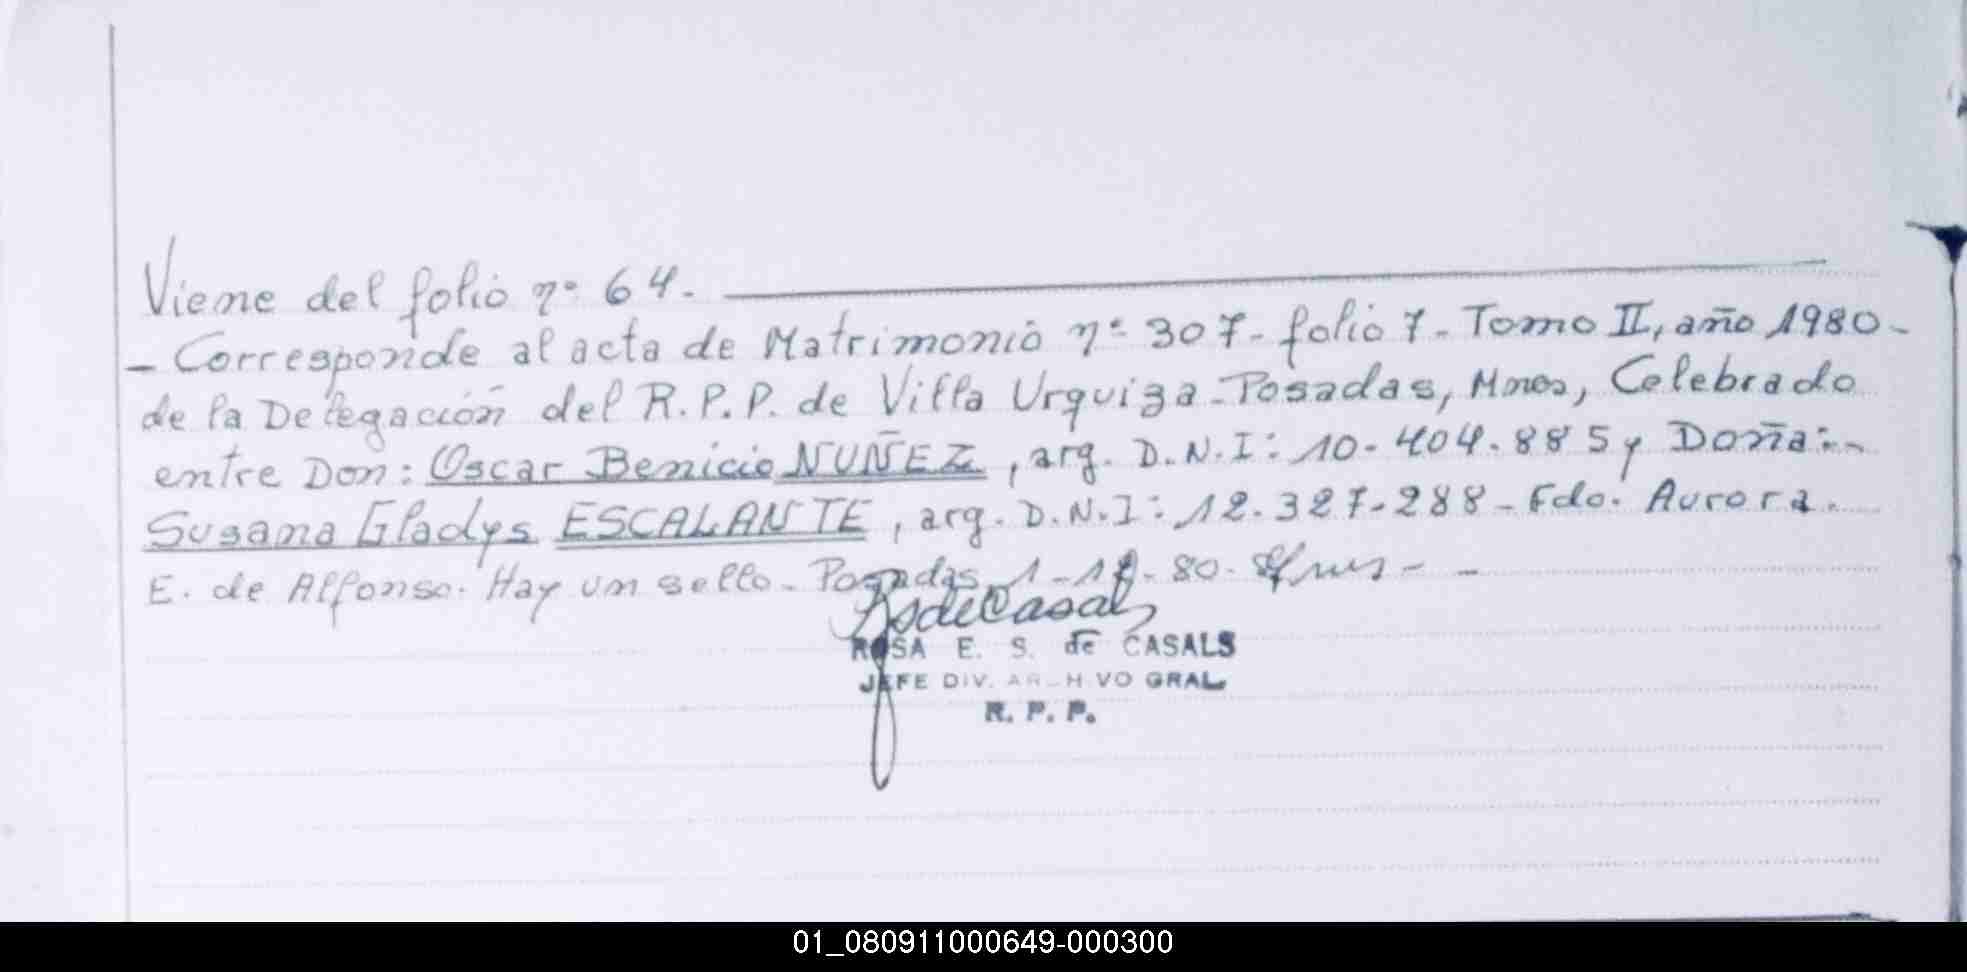 Viene del folio nº 64.
- Corresponde al acta de Matrimonio nº 307- folio 7- Tomo II, año 1980-
de la Delegación del R.P.P. de Villa Urquiza- Posadas, Mnes, Celebrado
entre Don: Oscar Benicio NUÑEZ, arg. D.N.I: 10-404-885 y Doña:-
Susana Gladys ESCALANTE, arg. D.N.I: 12.327-288- Fdo. Aurora.
E. de Alfonso. Hay un sello- Posadas, 80-
ROSA E. S. de CASALS
JEFE DIV. ARCHIVO GRAL
R. P. P.
01_080911000649-000300